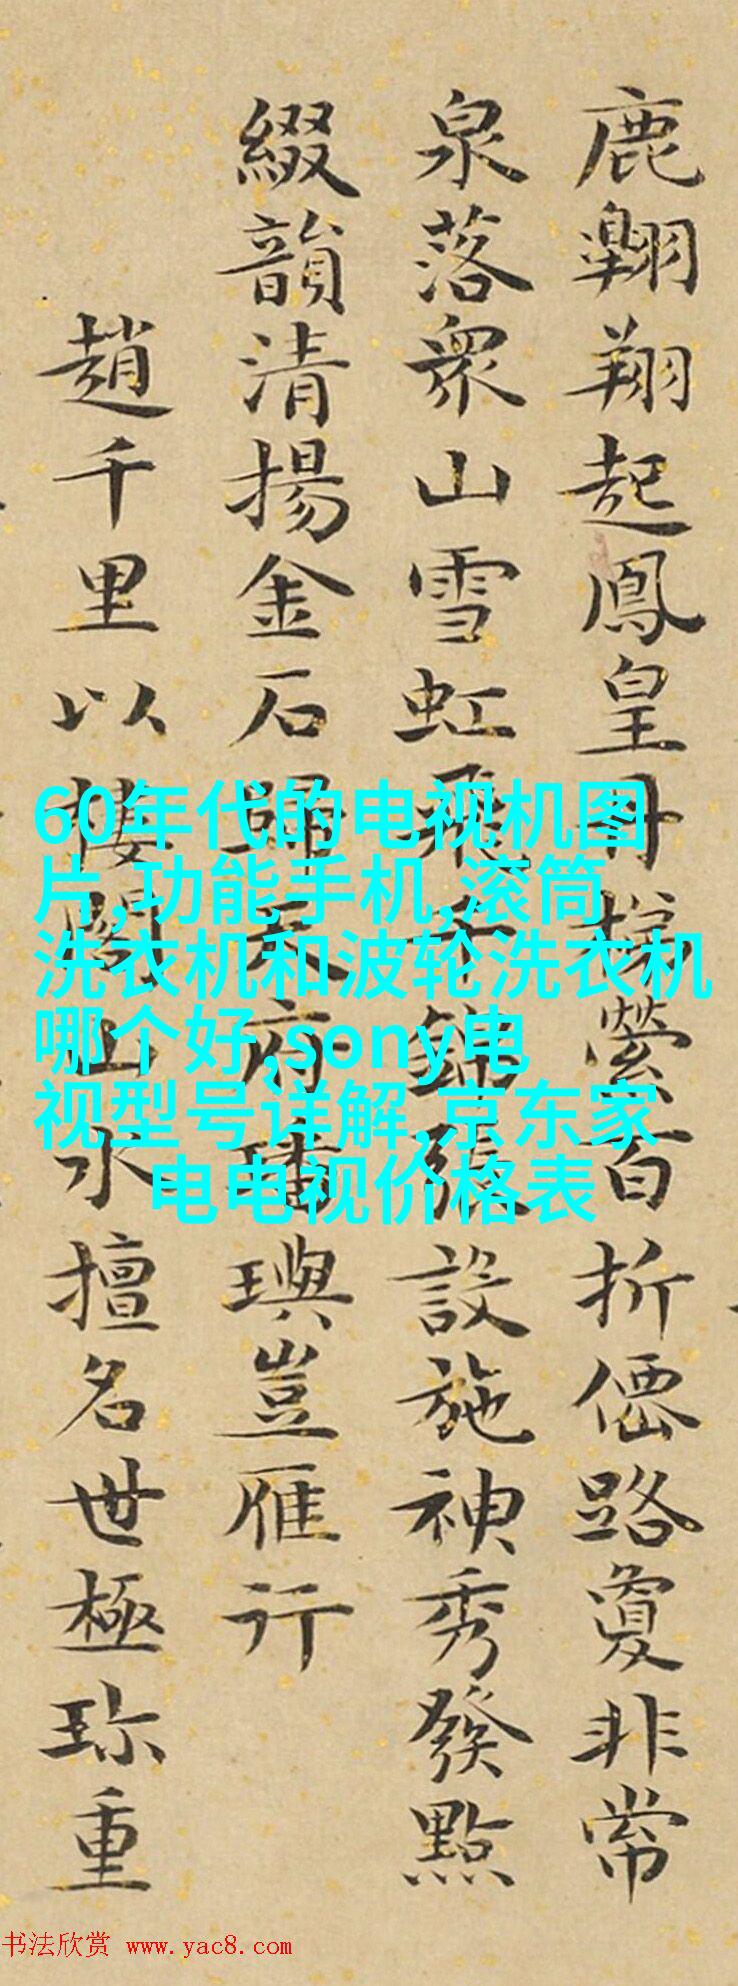 鹿翱翔起鳳皇丹梯縈百折僊路敻非常
泉落衆山雪虹飛千錦張設施神秀發點
綴韻清揚金石歸天府璠璵豈雁行
趙千里以樓閣山水擅名世極珎重
60年代的电视机图
片,功能手机,滚筒
洗衣机和波轮洗衣机
哪个好,sony电
视型号详解,京东家
电电视价格表
书法欣赏 www.yac8.com